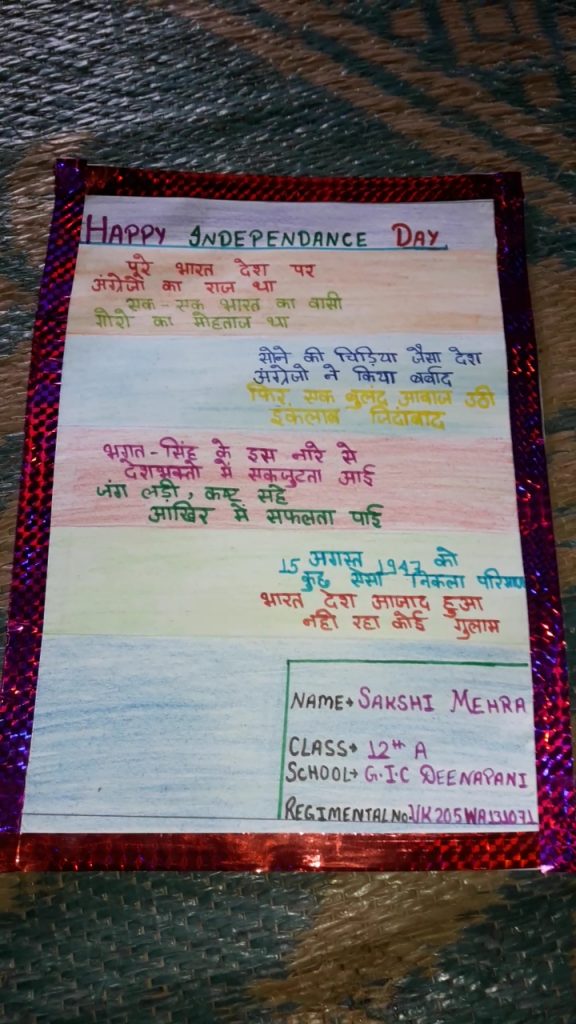 HAPPY INDEPENDANCE DAY
पूरे भारत देश पर
अंग्रेजो का राज था
एक-एक भारत का वासी
गोरो का मोहताज था
सोने की चिड़िया जैसा देश
अंग्रेजो ने किया बर्बाद
फिर एक बुलंद आवाज उठी
इंकलाब जिंदाबाद
भगत-सिंह के इस नारे से
देशभक्तो में एकजुटता आई
जंग लड़ी, कष्ट सहे
आखिर में सफलता पाई
15 अगस्त 1947 को
कुछ ऐसा निकला
भारत देश आजाद हुआ
नही रहा कोई गुलाम
NAME→ SAKSHI MEHRA
CLASS→ 12TH A
SCHOOL→ G.I.C DEENAPANI
REGIMENTAL NO.